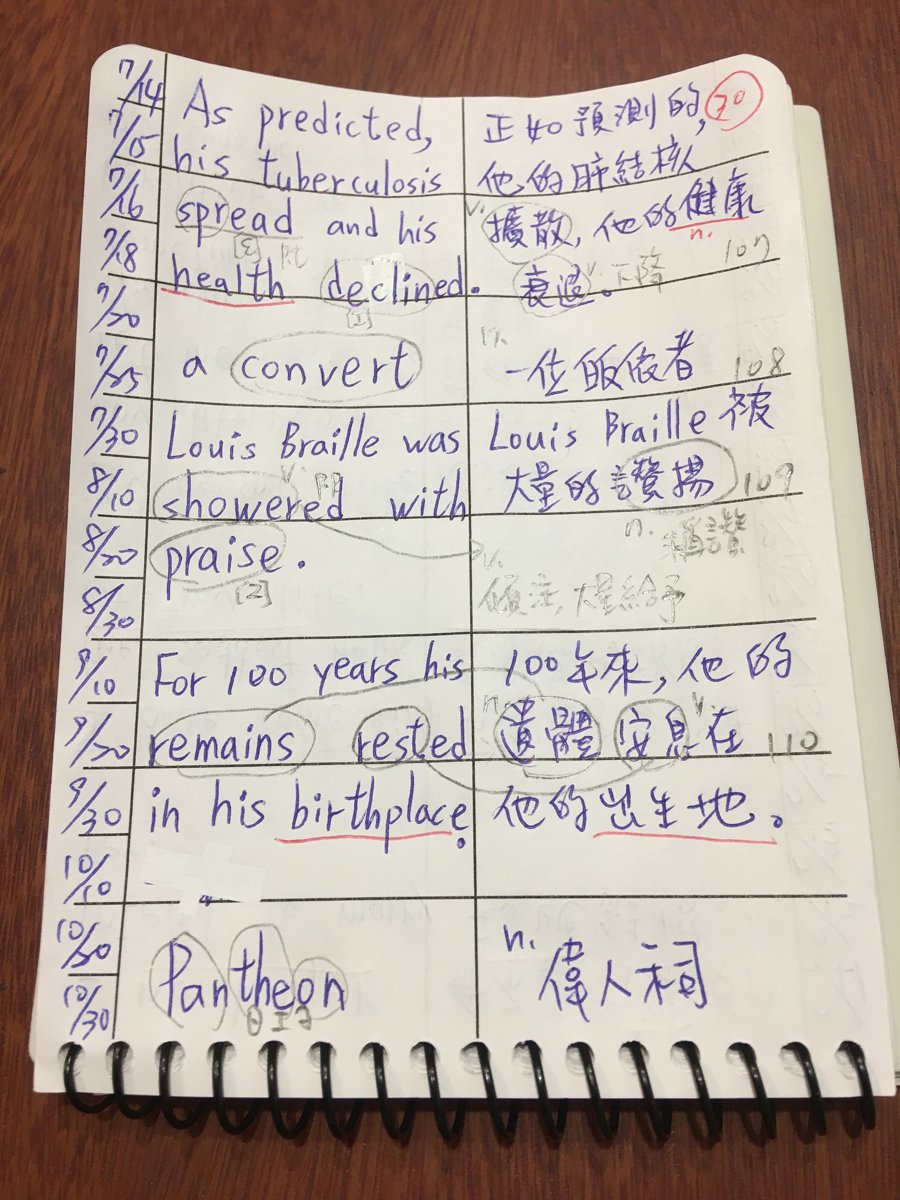 7/14
7/15
7/16
7/18
7/20
7/25
7/30
8/10
8/20
8/30
9/10
9/20
9/30
10/10
10/20
10/30
As predicted,
his tuberculosis
spread and his
[ε]
health declined.
[I]
正如預測的, 30
他的肺結核
v. 擴散, 他的健康
n. 107
衰退。 v. 下降
a convert
n.
一位皈依者 108
Louis Braille was
showered with
v.
praise.
[2]
Louis Braille 被
大量的讚揚 109
n. 稱讚
v.
傾注, 大量給予
For 100 years his
remains rested
in his birthplace.
100年來, 他的
n. 遺體 安息在 v. 110
他的出生地。
Pantheon
n.
偉人祠